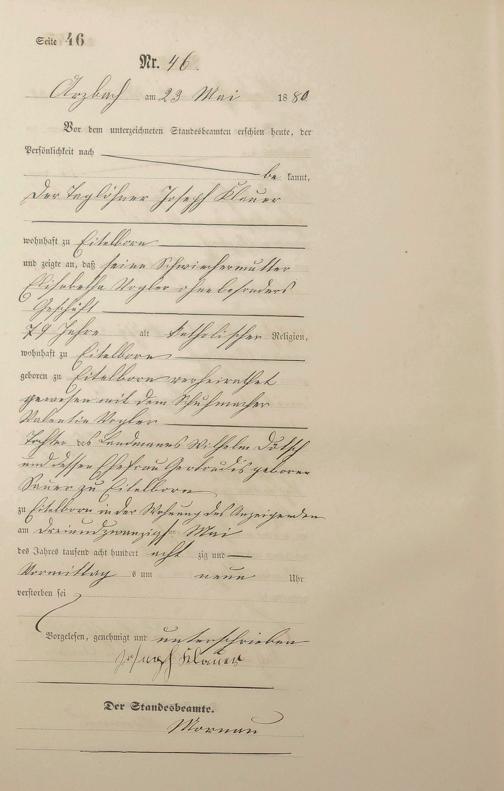 Seite 46
Nr. 46.
Arzbach am 23 Mai 1880
Vor dem unterzeichneten Standesbeamten erschien heute, der
Persönlichkeit nach
be kannt,
der Taglöhner Joseph Klauer
wohnhaft zu Eitelborn
und zeigte an, daß seine Schwiegermutter
Elisabetha Vogler ohne besonders
Geschäft
79 Jahre alt katholischer Religion,
wohnhaft zu Eitelborn
geboren zu Eitelborn verheirathet
gewesen mit dem Schuhmacher
Valentin Vogler
Tochter des Landmanns Wilhelm
und dessen Ehefrau Gertrudis geborene
Sauer zu Eitelborn
zu Eitelborn in der Wohnung des Anzeigenden
am dreiundzwanzigst Mai
des Jahres tausend acht hundert acht zig und
Vormittag s um neun Uhr
verstorben sei
Vorgelesen, genehmigt und unterschrieben
Joseph Klauer
Der Standesbeamte.
Mornau